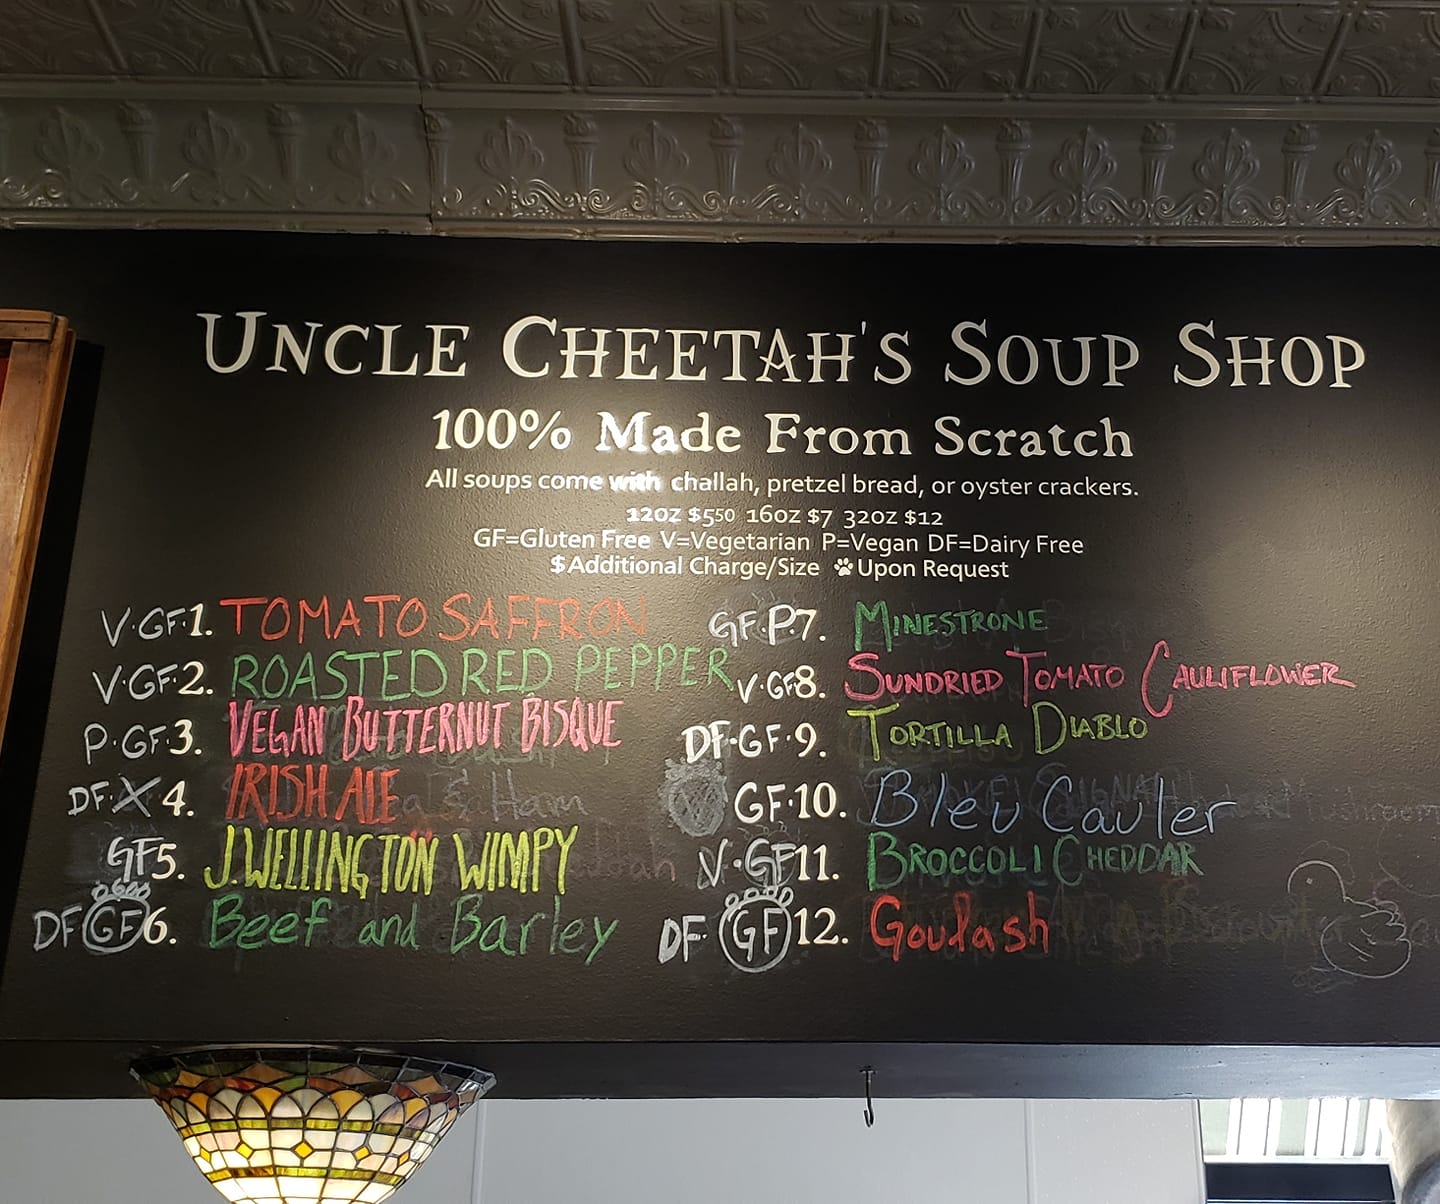 UNCLE CHEETAH'S SOUP SHOP
100% Made From Scratch
All soups come with challah, pretzel bread, or oyster crackers.
12oz $5.50 16oz $7 32oz $12
GF=Gluten Free V=Vegetarian P=Vegan DF=Dairy Free
$Additional Charge/Size 🐾Upon Request
V·GF·1. TOMATO SAFFRON
V·GF·2. ROASTED RED PEPPER
P·GF·3. VEGAN BUTTERNUT BISQUE
DF·X 4. IRISH ALE
GF5. J.WELLINGTON WIMPY
DF GF 6. Beef and Barley
GF·P·7. MINESTRONE
V·GF8. SUNDRIED TOMATO CAULIFLOWER
DF·GF·9. TORTILLA DIABLO
GF·10. Bleu Cauler
V·GF11. BROCCOLI CHEDDAR
DF· GF 12. Goulash